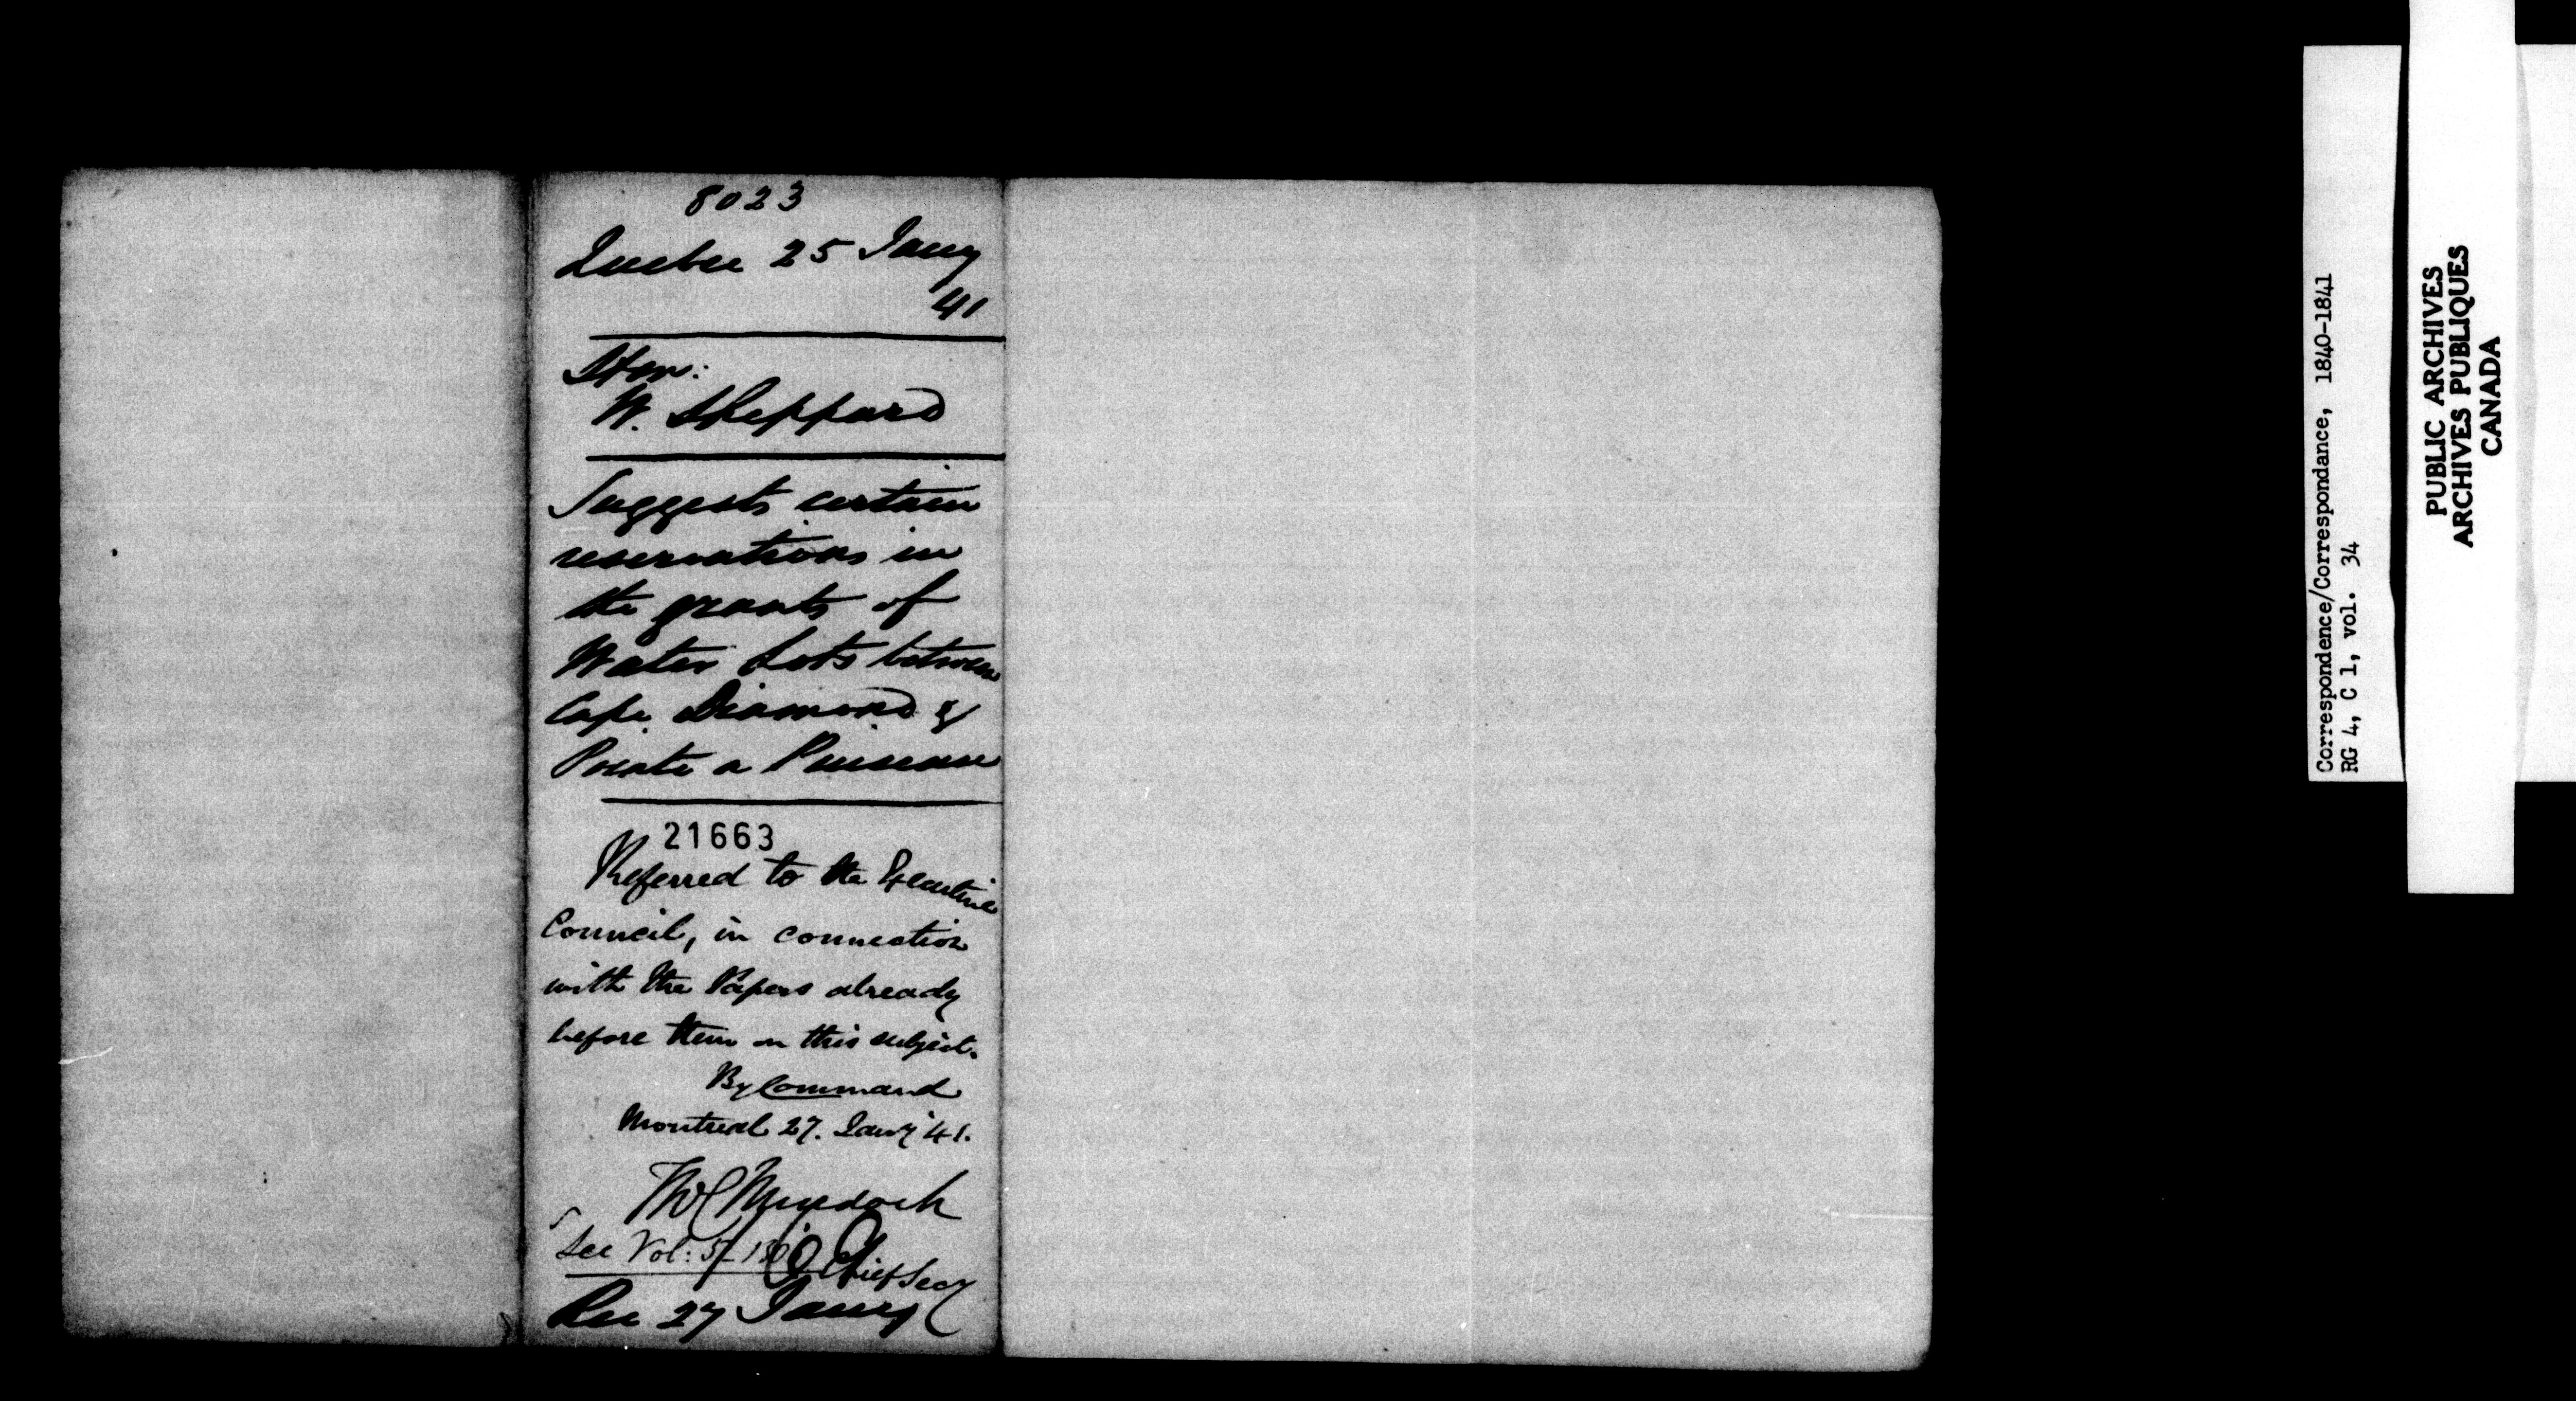 8023
Quebec 25 Jany
41
Hon:
W. Sheppard
Suggests certain
reservations in
the grants of
Water Lots between
Cape Diamond &
Pointe a Puiseau
21663
Referred to the Executive
Council, in connection
with the Papers already
before them on this subject.
By Command
Montreal 27. Jany 41.
T W C Murdoch
Chief Secy
See Vol:
Rec 27 Jany
Correspondence/Correspondance, 1840-1841
RG 4, C 1, vol. 34
PUBLIC ARCHIVES
ARCHIVES PUBLIQUES
CANADA